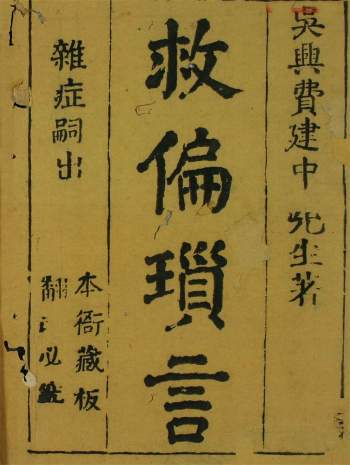 吳興費建中先生著
救偏瑣言
雜症嗣出
本衙藏板
翻刻必究